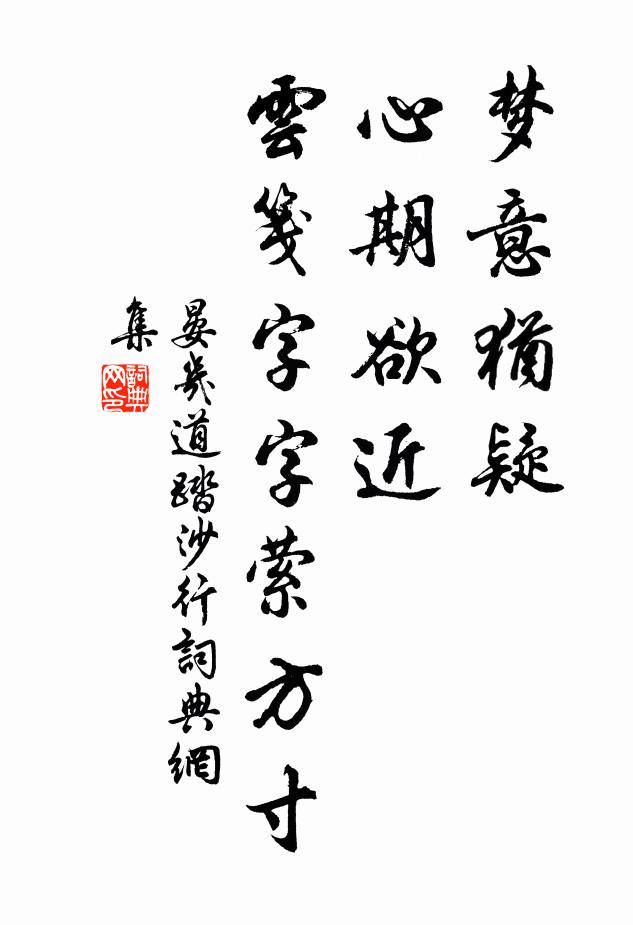 梦意猶疑
心期欲近
雲箋字字萦方寸
晏幾道踏沙行詞典網
集
詞典
网印